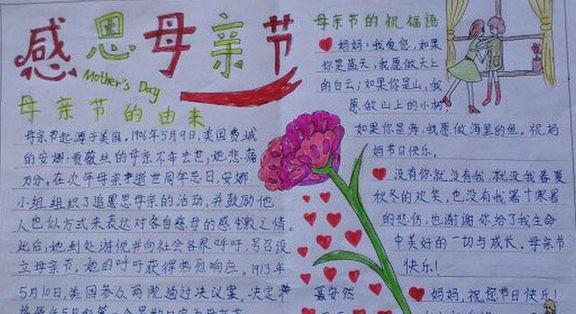 感恩母亲节
Mother's Day
母亲节的由来
母亲节起源于美国。1906年5月9日,美国费城
的安娜·贾薇丝的母亲不幸去世,她悲痛
万分。在次年母亲逝世周年忌日,安娜
小姐组织了追思母亲的活动,并鼓励他
人也以类似方式来表达对各自慈母的感激之情。
此后,她到处游说并向社会各界呼吁,号召设
立母亲节。她的呼吁获得热烈响应。1913年
5月10日,美国参众两院通过决议案,决定
母亲节的祝福语
妈妈:我爱您,如果
你是蓝天,我愿做天上
的白云;如果你是山,我
愿做山上的小树
如果你是海,我愿做海里的鱼。祝妈
妈节日快乐。
没有你就没有我,就没我春夏
秋冬的欢笑,也没有我暑十寒暑
的悲伤,也谢谢你给了我生命
中美好的一切与成长。母亲节
快乐!
妈妈,祝您节日快乐!